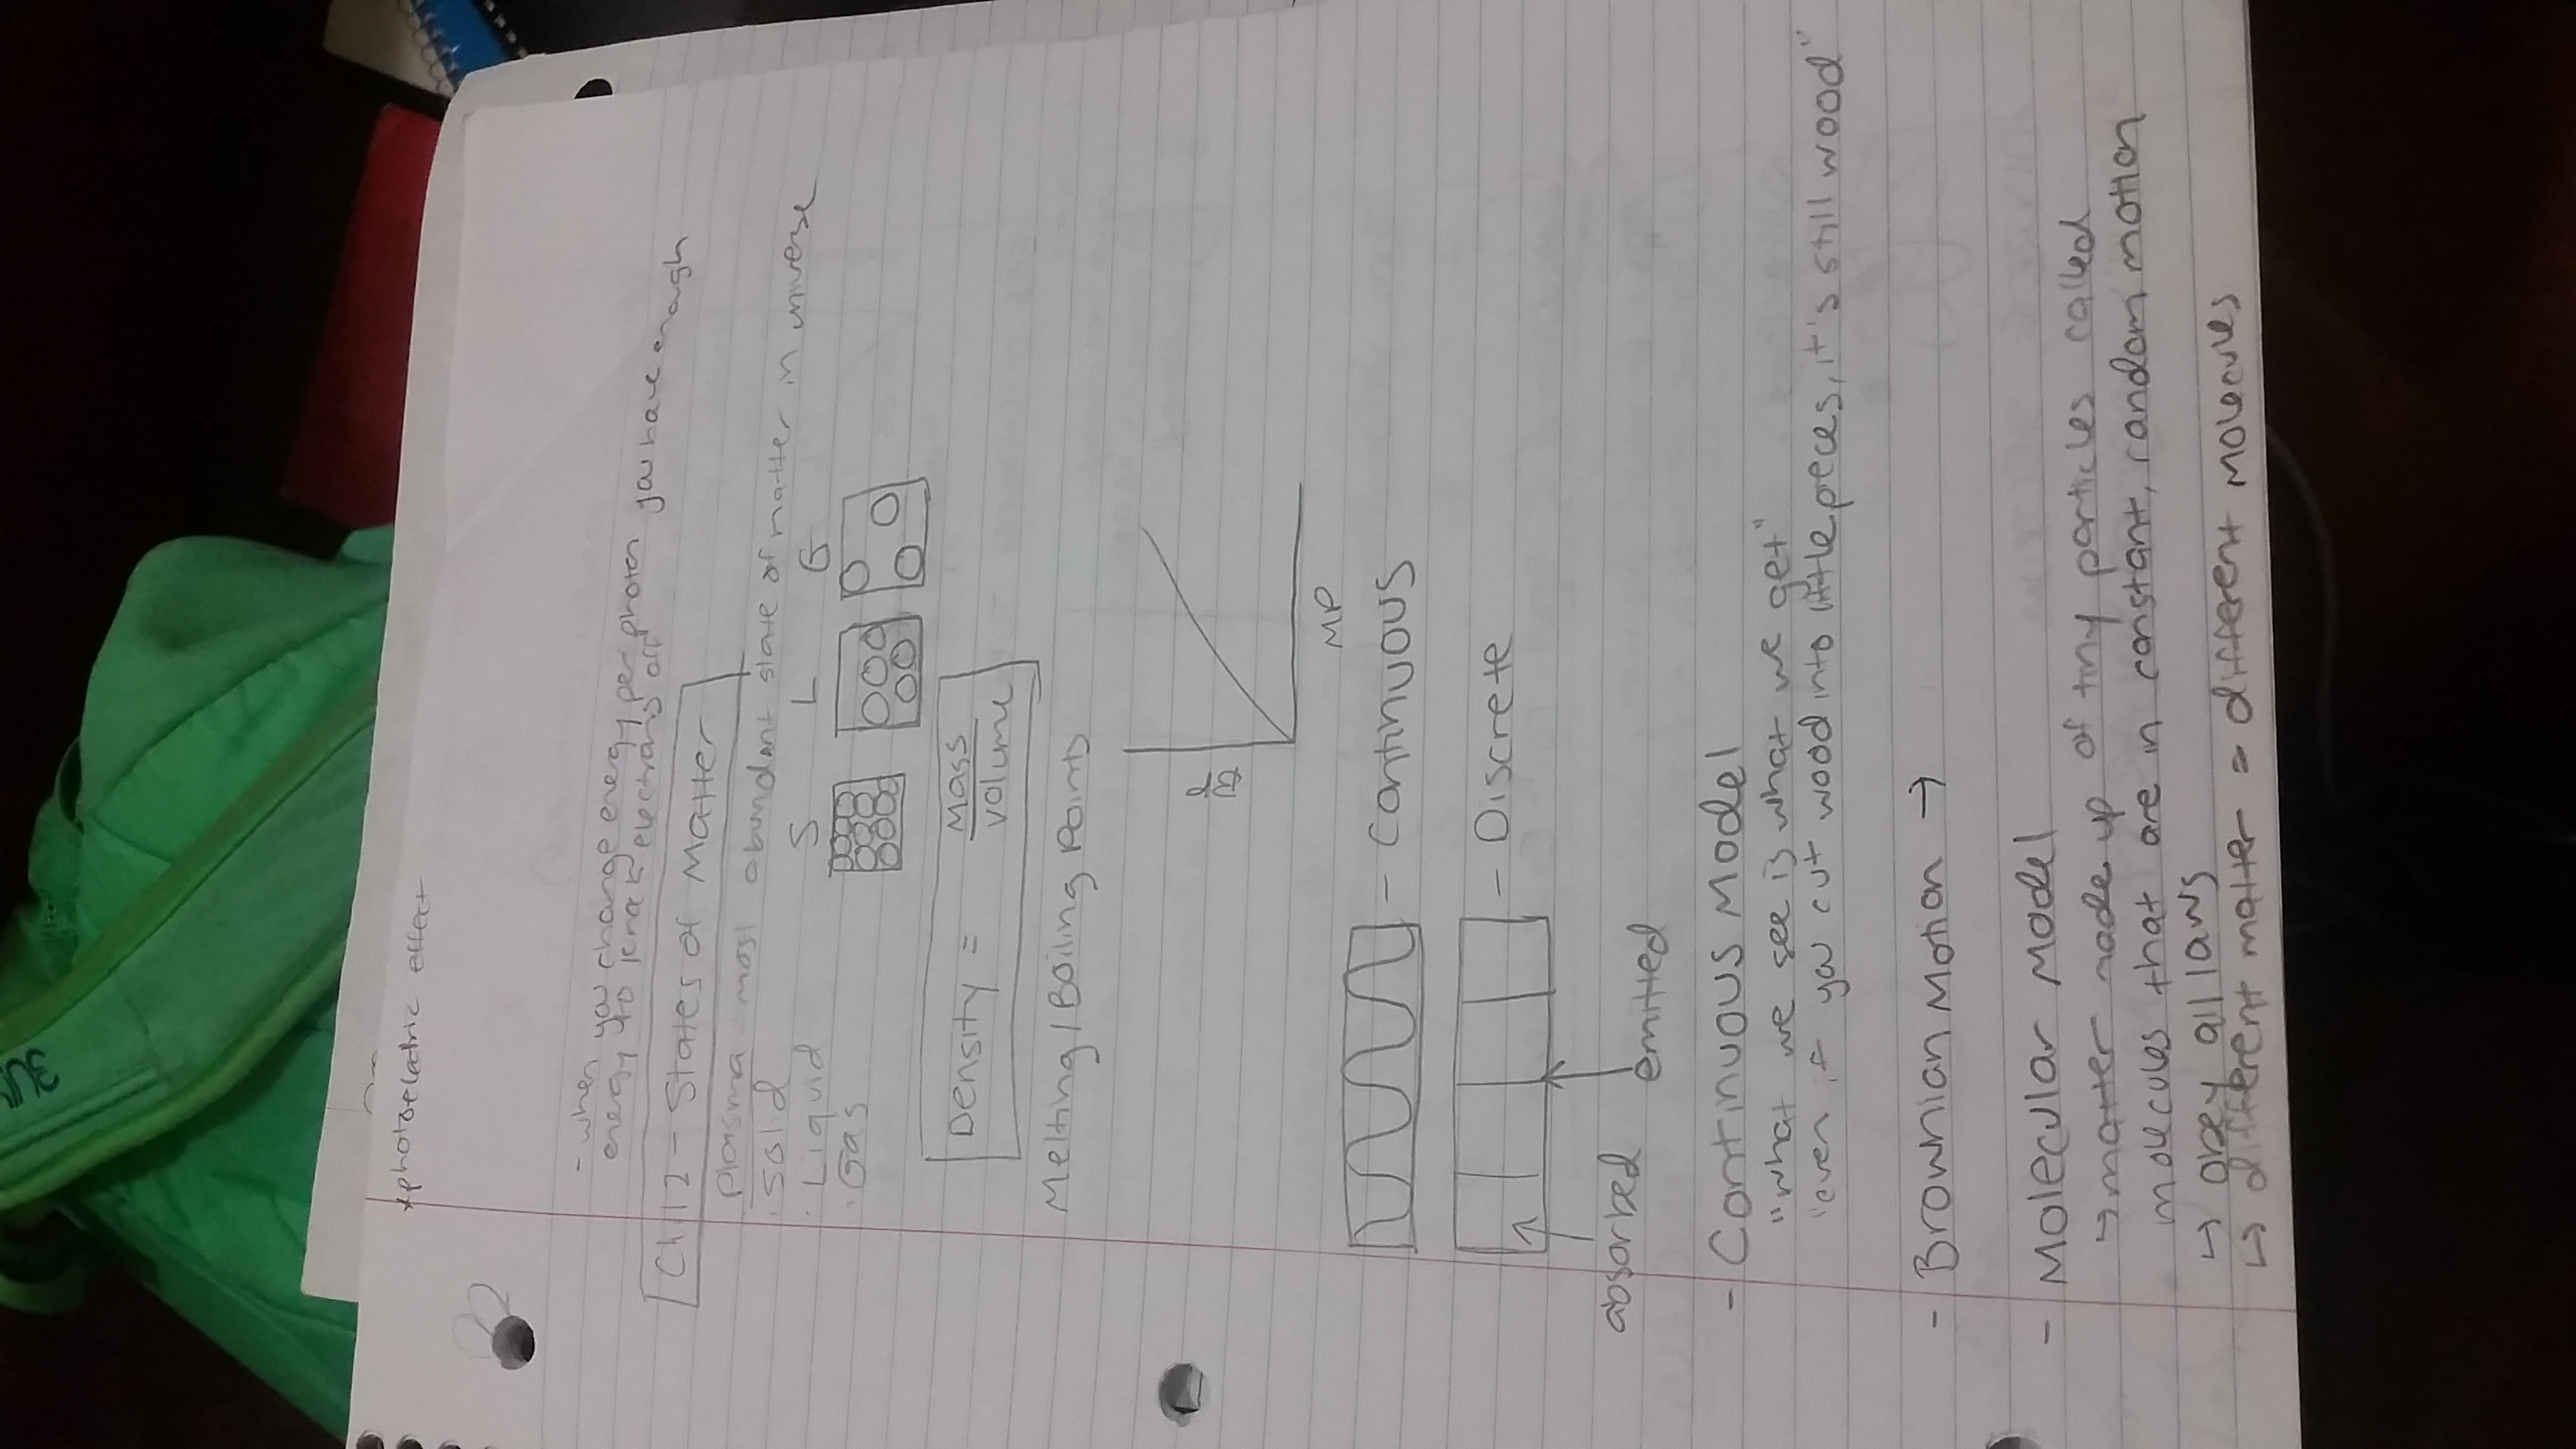 *photoelectric effect
- when you change energy per photon you have enough
energy to knock electrons off
Ch 12 - States of Matter
Plasma - most abundant state of matter in universe
. Solid S L G
. Liquid
. Gas
Density = Mass
volume
Melting / Boiling Points
MP
- Continuous
- Discrete
absorbed emitted
- Continuous Model
"what we see is what we get"
"even if you cut wood into little pieces, it's still wood"
- Brownian Motion →
- Molecular Model
↳ matter made up of tiny particles called
molecules that are in constant, random motion
↳ obey all laws
↳ different matter = different molecules